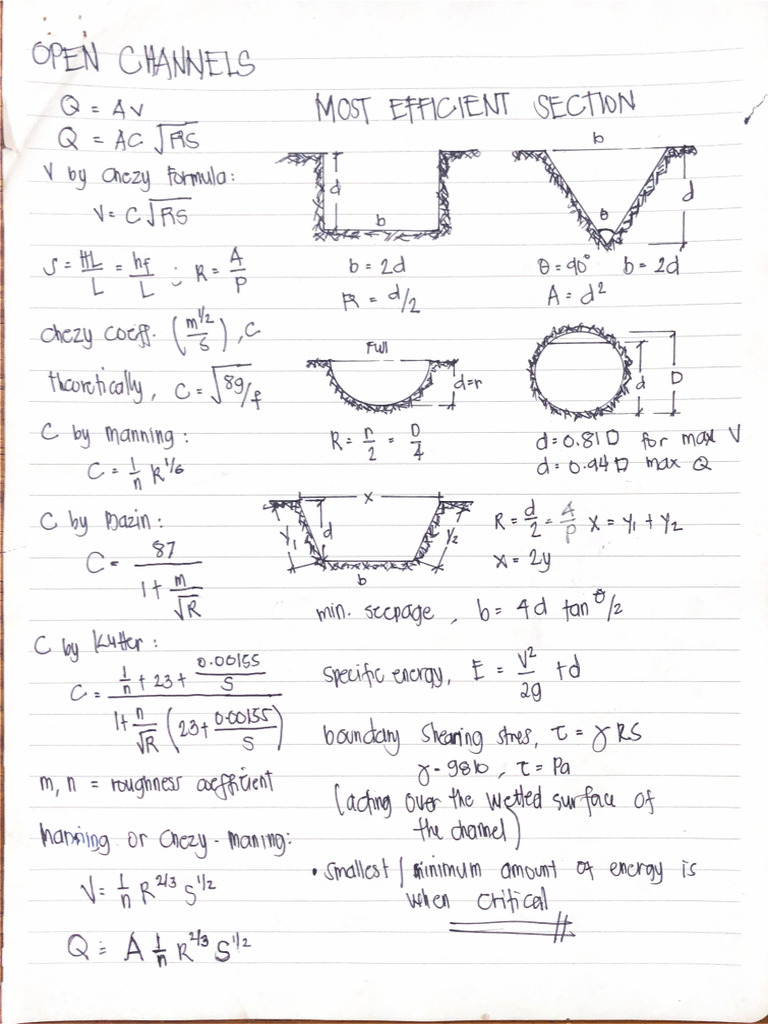 OPEN CHANNELS
Q = AV
Q = AC √RS
V by Chezy Formula:
V = C√RS
S = HL/L = hf/L ; R = A/P
Chezy coeff. (m^1/2/s), C
theoretically, C = √8g/f
C by manning:
C = 1/n R^1/6
C by Bazin:
C = 87 / (1 + m/√R)
C by Kutter:
C = (1/n + 23 + 0.00155/S) / (1 + n/√R (23 + 0.00155/S))
m, n = roughness coefficient
Manning or Chezy-Maning:
V = 1/n R^2/3 S^1/2
Q = A 1/n R^2/3 S^1/2
MOST EFFICIENT SECTION
d
b
b = 2d
R = d/2
b
d
θ
θ = 90° b = 2d
A = d²
Full
d=r
R = r/2 = D/4
d
D
d = 0.81D for max V
d = 0.94D max Q
x
y₁
d
y₂
b
R = d/2 = A/P x = y₁ + y₂
x = 2y
min. seepage, b = 4d tan θ/2
specific energy, E = V²/2g + d
boundary shearing stres, τ = γRS
γ - 9810, τ = Pa
(acting over the wetted surface of
the channel)
• smallest / minimum amount of energy is
when critical